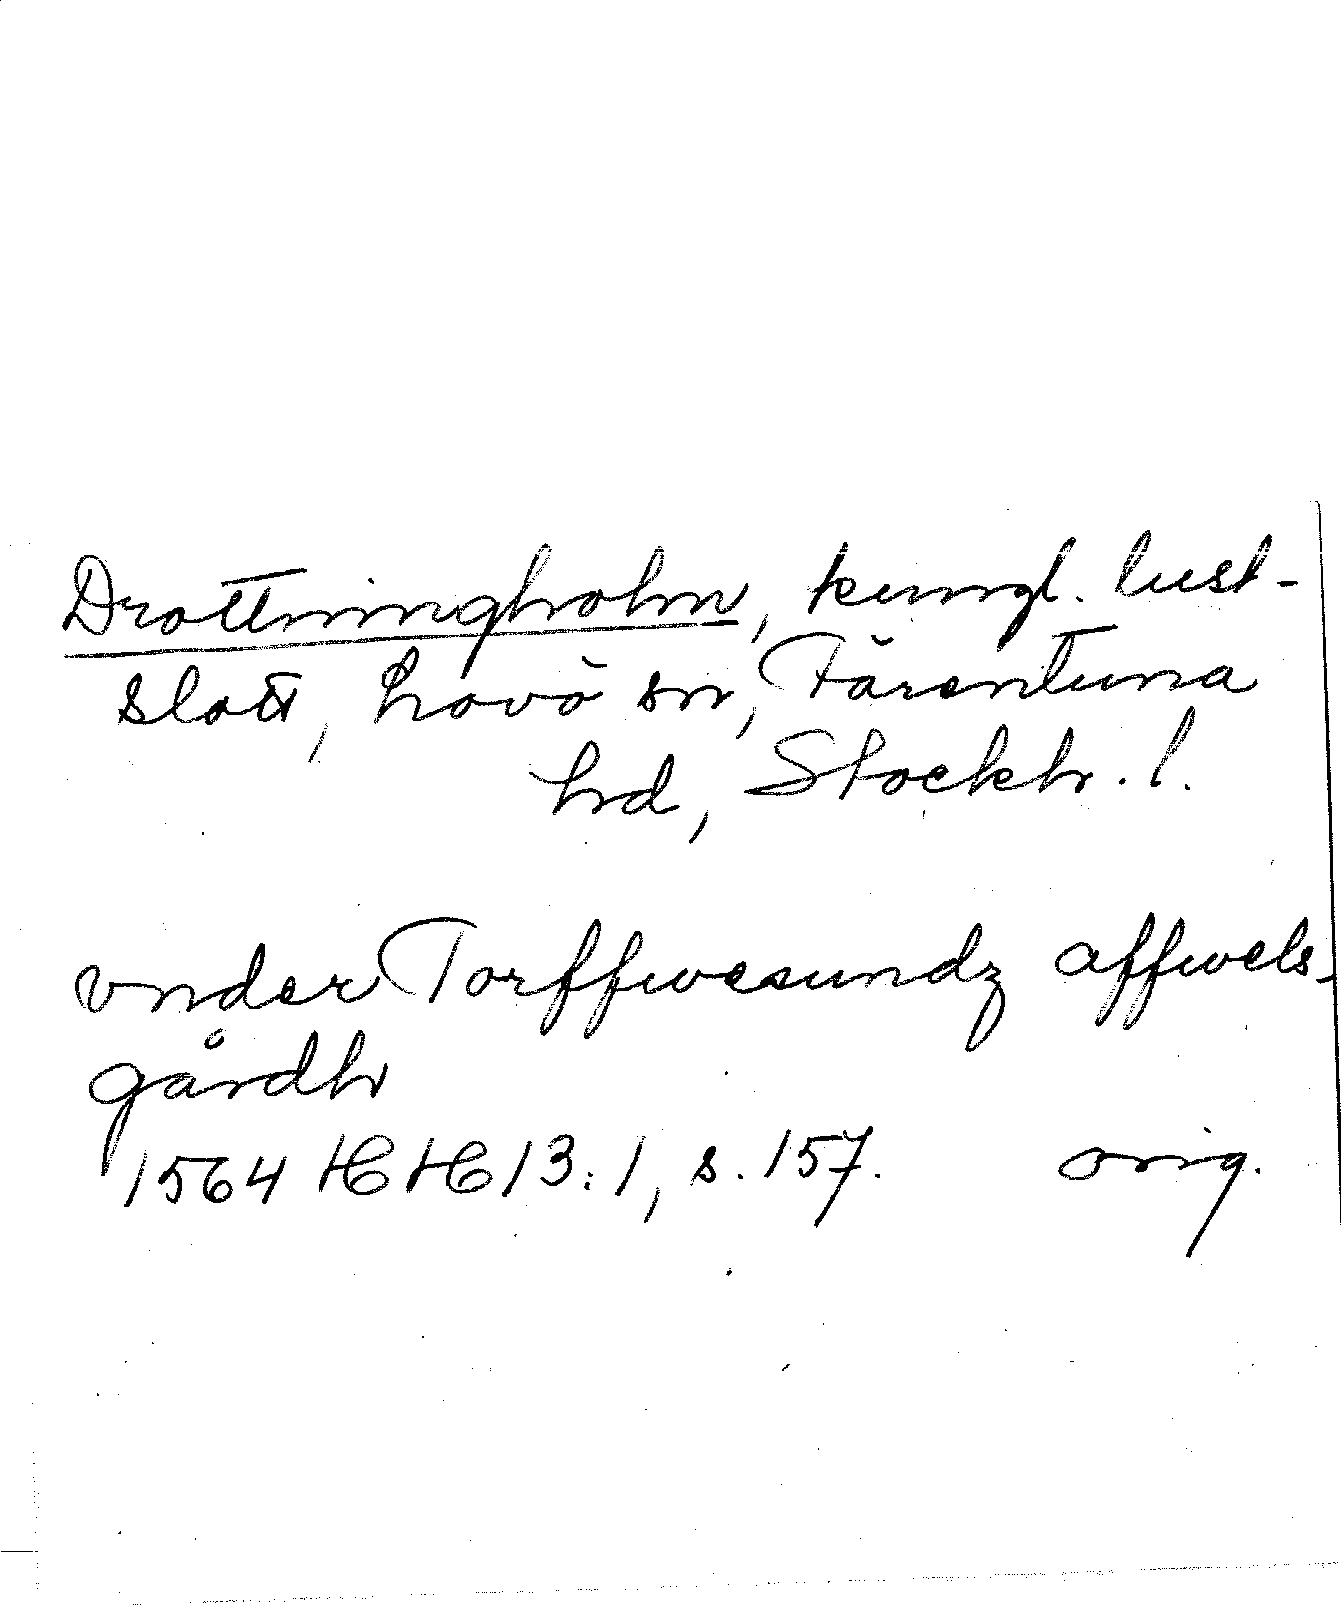 Drottningholm, kungl. lust-
slott, Lovö sn, Färentuna
hrd, Stockh. l.
vnder Torffwesundz affwels-
gårdh
1564 HH 13:1, s. 157. orig.